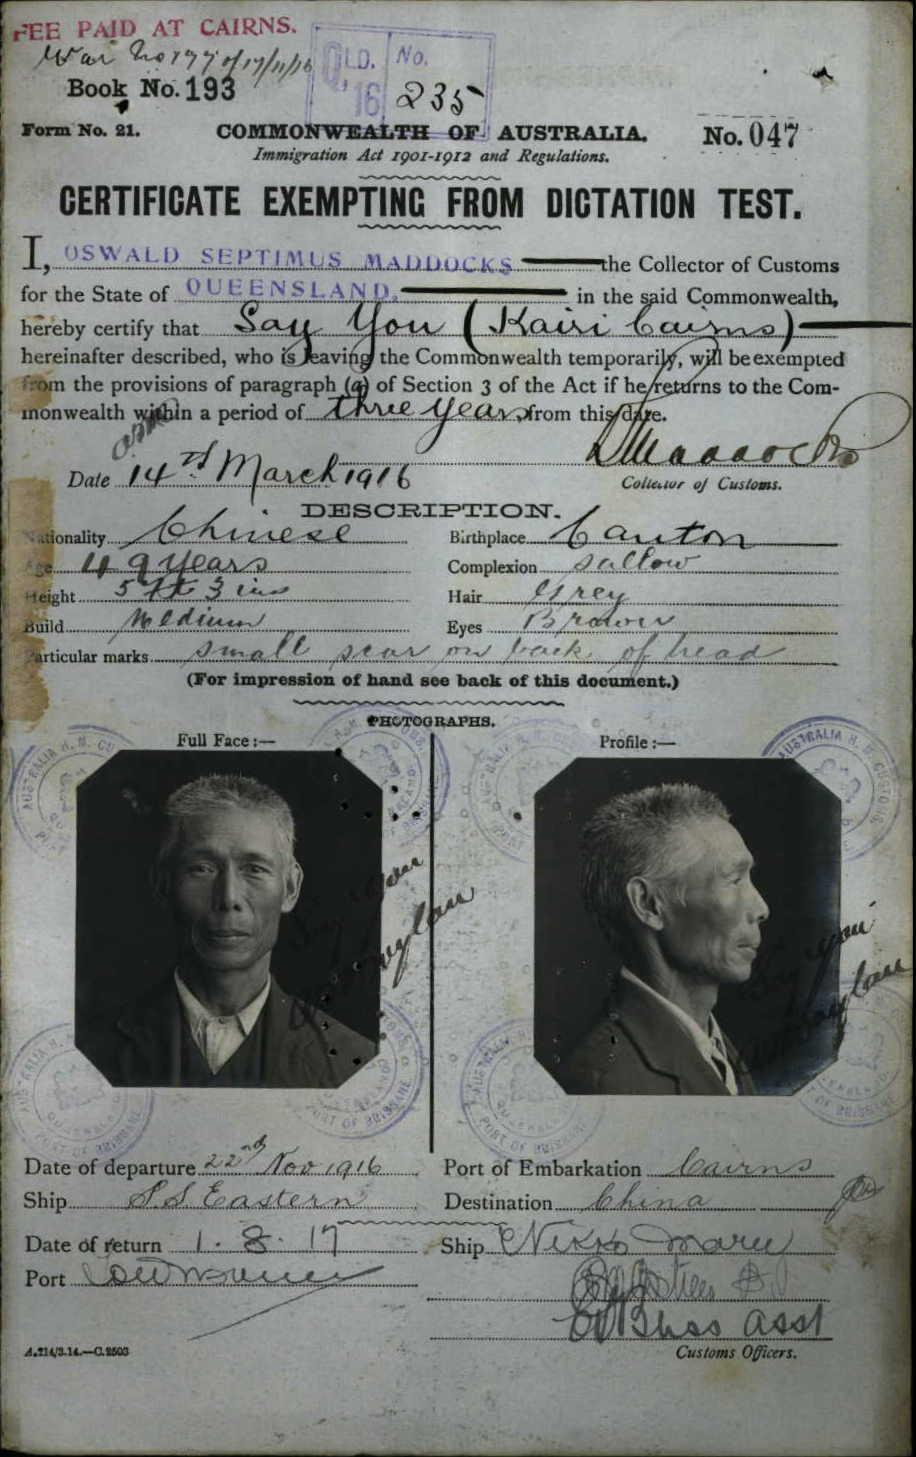 FEE PAID AT CAIRNS.
QLD. No.
'16 235
Book No. 193
Form No. 21. COMMONWEALTH OF AUSTRALIA. No. 047
Immigration Act 1901-1912 and Regulations.
CERTIFICATE EXEMPTING FROM DICTATION TEST.
I, OSWALD SEPTIMUS MADDOCKS the Collector of Customs
for the State of QUEENSLAND. in the said Commonwealth,
hereby certify that Say You (Kairi Cairns)
hereinafter described, who is leaving the Commonwealth temporarily, will be exempted
from the provisions of paragraph (a) of Section 3 of the Act if he returns to the Com-
monwealth within a period of three years from this date.
Date 14th March 1916
Collector of Customs.
DESCRIPTION.
Nationality Chinese Birthplace Canton
Age 49 years Complexion sallow
Height 5 ft 3 ins Hair Grey
Build Medium Eyes Brown
Particular marks small scar on back of head
(For impression of hand see back of this document.)
PHOTOGRAPHS.
Full Face :— Profile :—
Say You
Say You
Date of departure 22nd Nov 1916 Port of Embarkation Cairns
Ship S.S Eastern Destination China
Date of return 1. 8. 17 Ship Nikko Maru
Port
Asst
A.214/3.14.—C.2503 Customs Officers.